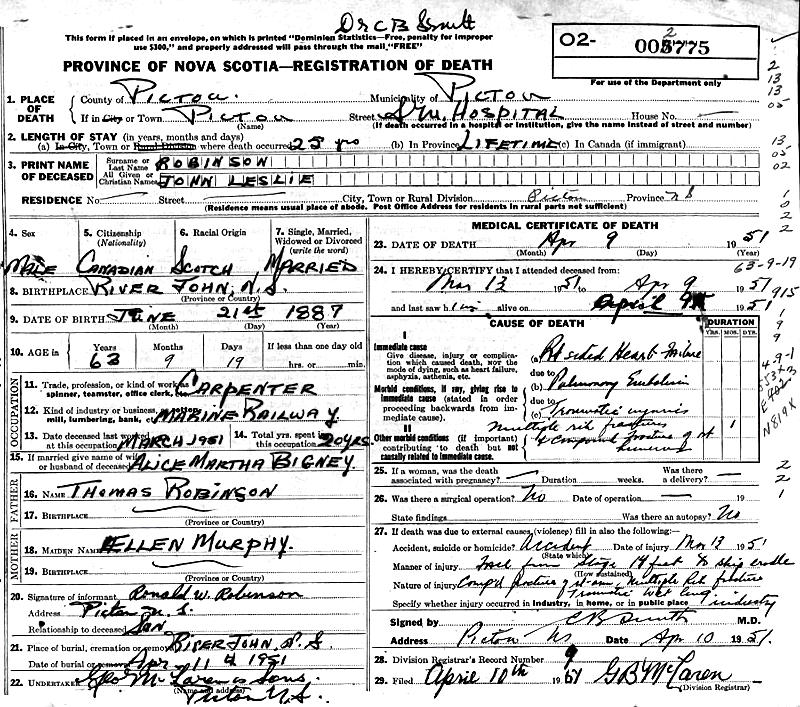 Dr C B Smith
This form if placed in an envelope, on which is printed "Dominion Statistics—Free, penalty for improper
use $300," and properly addressed will pass through the mail, "FREE"
O2- 005775
2
For use of the Department only
PROVINCE OF NOVA SCOTIA—REGISTRATION OF DEATH
1. PLACE OF DEATH County of Pictou. Municipality of Pictou
If in City or Town Pictou (Name) Street S M. HOSPITAL House No. —
(If death occurred in a hospital or institution, give the name instead of street and number)
2. LENGTH OF STAY (in years, months and days)
(a) In City, Town or Rural Division where death occurred 25 yrs (b) In Province LIFETIME (c) In Canada (if immigrant)
3. PRINT NAME OF DECEASED Surname or Last Name ROBINSON
All Given or Christian Names JOHN LESLIE
RESIDENCE No. — Street — City, Town or Rural Division Pictou Province N S
(Residence means usual place of abode. Post Office Address for residents in rural parts not sufficient)
4. Sex 5. Citizenship (Nationality) 6. Racial Origin 7. Single, Married, Widowed or Divorced (write the word)
MALE CANADIAN SCOTCH MARRIED
8. BIRTHPLACE RIVER JOHN, N.S.
(Province or Country)
9. DATE OF BIRTH JUNE 21st 1887
(Month) (Day) (Year)
10. AGE in Years Months Days If less than one day old
63 9 19 hrs. or min.
OCCUPATION
11. Trade, profession, or kind of work as spinner, teamster, office clerk, etc. CARPENTER
12. Kind of industry or business, as cotton mill, lumbering, bank, etc. MARINE RAILWAY
13. Date deceased last worked at this occupation MARCH 1951 14. Total yrs. spent in this occupation 20 yrs.
15. If married give name of wife or husband of deceased ALICE MARTHA BIGNEY.
FATHER
16. NAME THOMAS ROBINSON
17. BIRTHPLACE
(Province or Country)
MOTHER
18. MAIDEN NAME ELLEN MURPHY.
19. BIRTHPLACE
(Province or Country)
20. Signature of informant Ronald W. Robinson
Address Pictou N. S.
Relationship to deceased Son
21. Place of burial, cremation or removal RIVER JOHN, N.S.
Date of burial or removal Apr 11th 1951
22. UNDERTAKER Geo McLaren & Sons.
(Name and address)
Pictou N.S.
MEDICAL CERTIFICATE OF DEATH
23. DATE OF DEATH Apr 9 1951
(Month) (Day) (Year)
24. I HEREBY CERTIFY that I attended deceased from:
63-9-19
Mar 13 1951 to Apr 9 1951
and last saw him alive on April 9th 1951
CAUSE OF DEATH DURATION
YRS. MOS. DYS.
I
Immediate cause
Give disease, injury or complication which caused death, not the mode of dying, such as heart failure, asphyxia, asthenia, etc.
(a) Rt sided Heart Failure
due to
Morbid conditions, if any, giving rise to immediate cause (stated in order proceeding backwards from immediate cause).
(b) Pulmonary Embolism
due to
(c) Traumatic injuries
II
Other morbid conditions (if important) contributing to death but not causally related to immediate cause.
multiple rib fractures 1
& Compound fracture of rt humerus
25. If a woman, was the death associated with pregnancy? — Duration weeks. Was there a delivery? —
26. Was there a surgical operation? No Date of operation — 19
State findings Was there an autopsy? No
27. If death was due to external causes (violence) fill in also the following:
Accident, suicide or homicide? Accident Date of injury Mar 13 1951
(State which)
Manner of injury Fall from stage 14 feet to ship cradle
(How sustained)
Nature of injury Compd fracture rt arm, Multiple Rib fracture
Traumatic Wet lung
Specify whether injury occurred in industry, in home, or in public place industry
Signed by C B Smith M.D.
Address Pictou NS Date Apr 10 1951.
28. Division Registrar's Record Number 9
29. Filed April 10th 1951 G B McLaren
(Division Registrar)